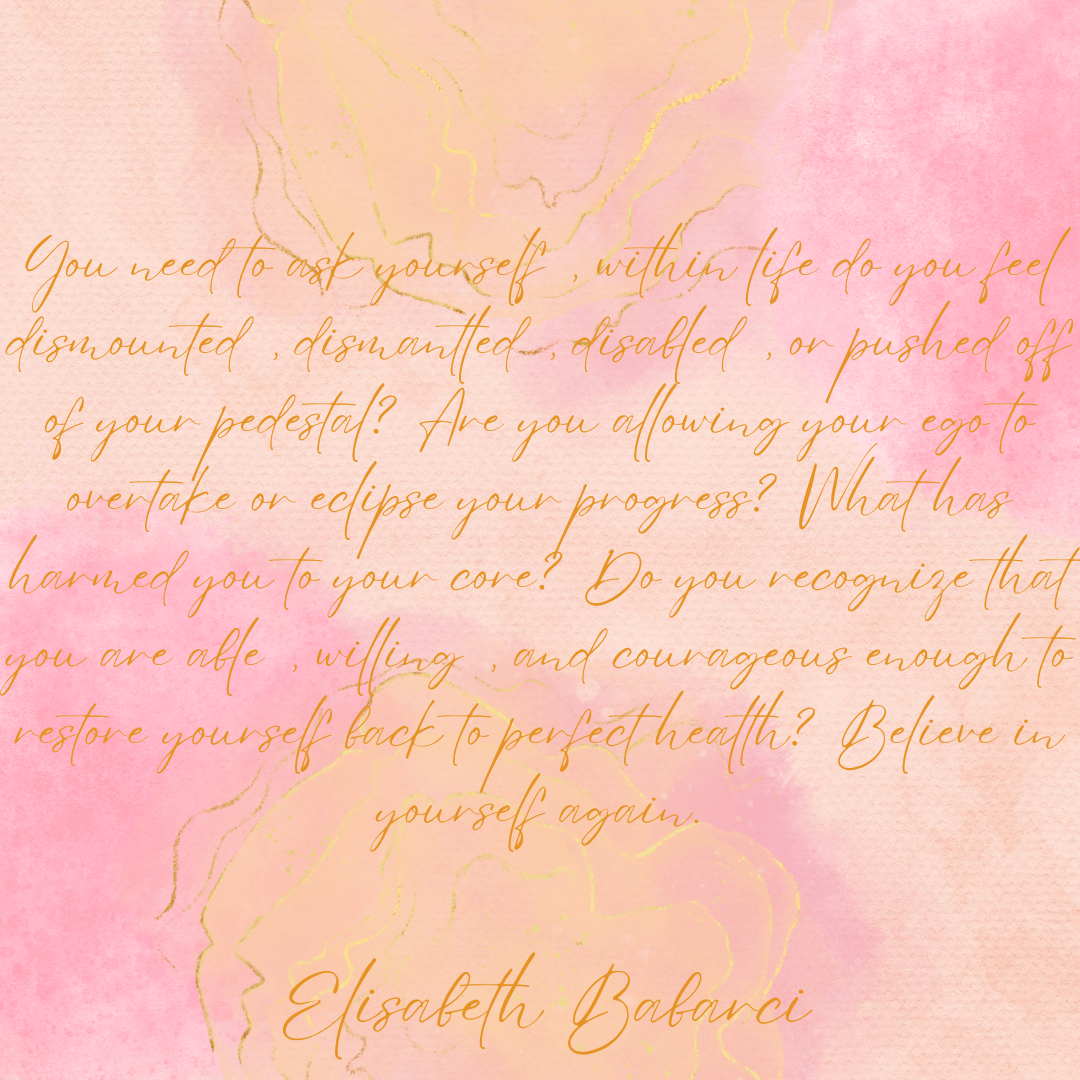 You need to ask yourself , within life do you feel
dismounted , dismantled , disabled , or pushed off
of your pedestal? Are you allowing your ego to
overtake or eclipse your progress? What has
harmed you to your core? Do you recognize that
you are able , willing , and courageous enough to
restore yourself back to perfect health? Believe in
yourself again.
Elisabeth Babarci